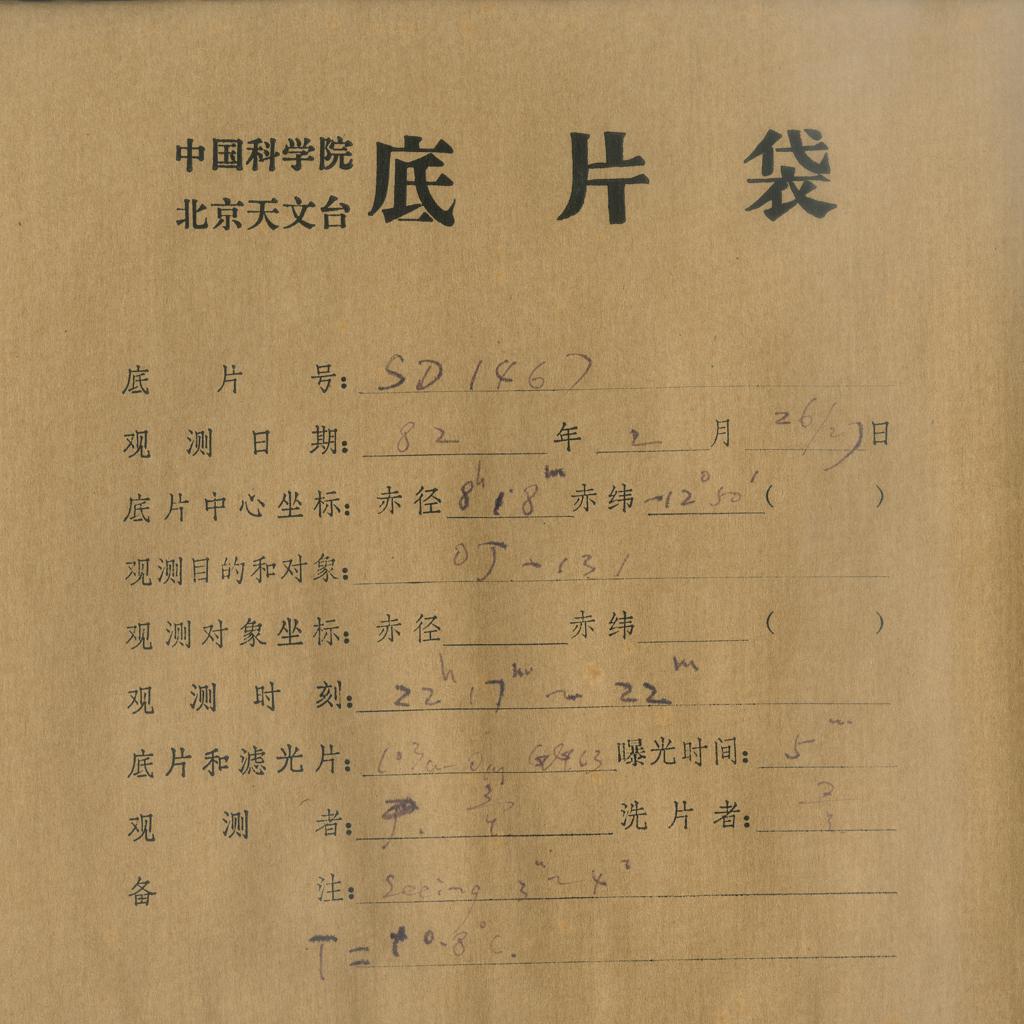 中国科学院
北京天文台 底片袋
底片号: SD 1467
观测日期: 82 年 2 月 26/27 日
底片中心坐标: 赤径 8h18m 赤纬 -12°50′ ( )
观测目的和对象: OJ-131
观测对象坐标: 赤径 赤纬 ( )
观测时刻: 22h 17m ~ 22m
底片和滤光片: 103a- 曝光时间: 5m
观测者: 洗片者:
备注: Seeing 3″~4″
T=+0.8°C.